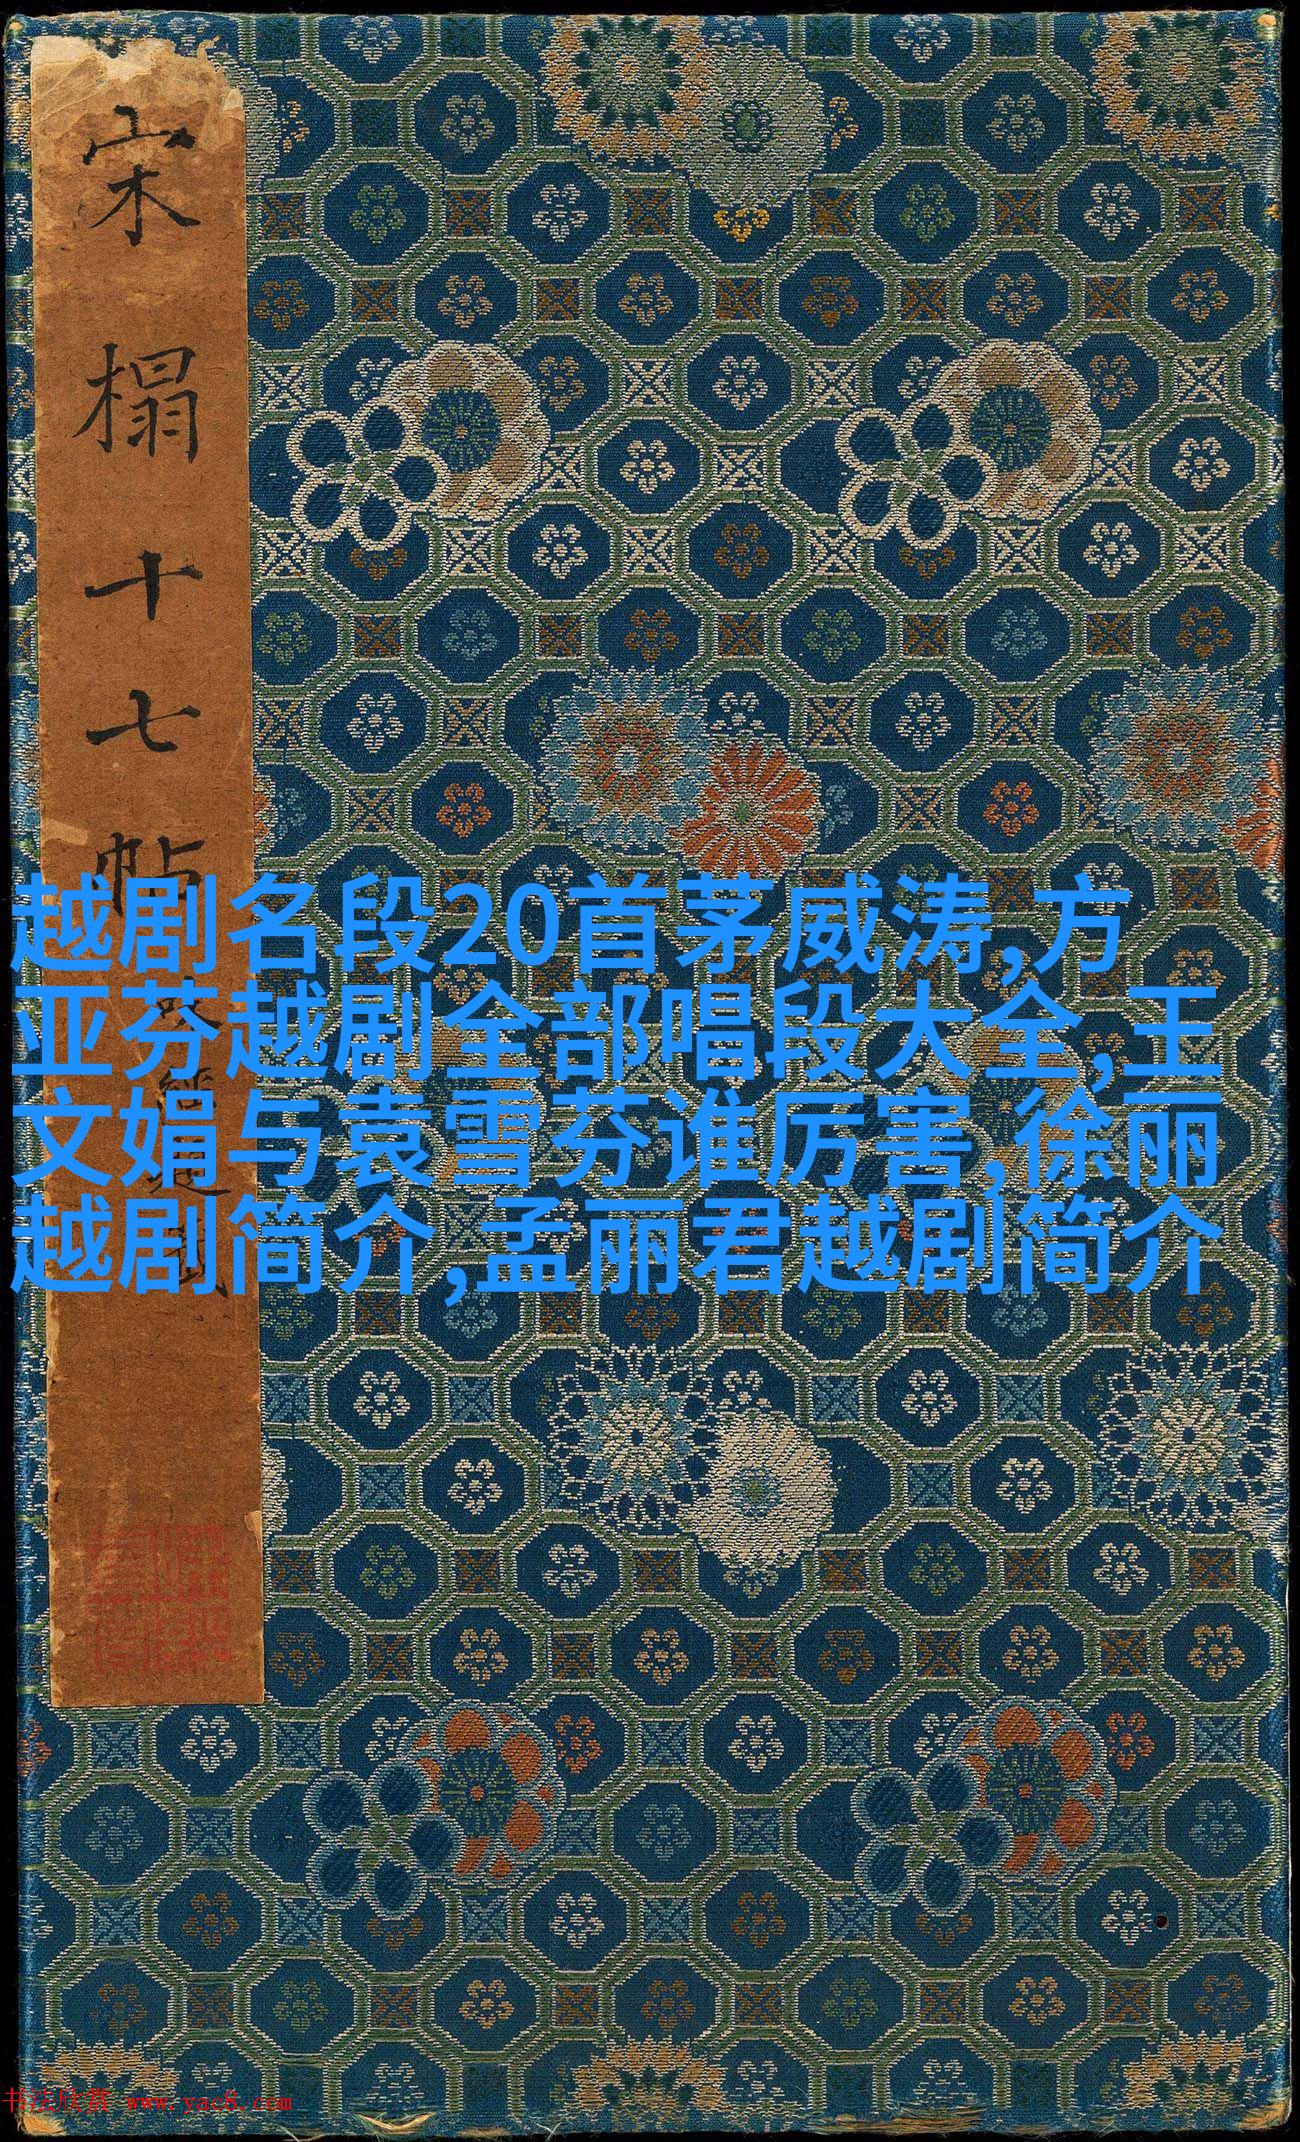 宋榻十七帖
越剧名段20首茅威涛,方
亚芬越剧全部唱段大全,王
文娟与袁雪芬谁厉害,徐丽
越剧简介,孟丽君越剧简介
书法欣赏 www.yac8.com